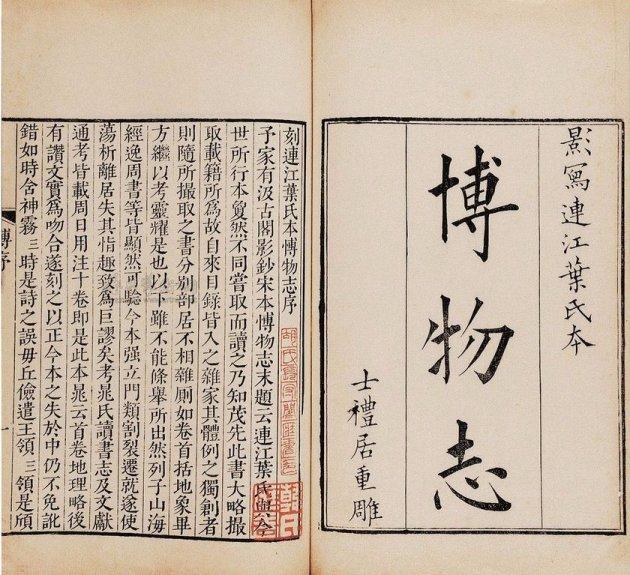 影寫連江葉氏本
博物志
士禮居重雕
刻連江葉氏本博物志序
予家有汲古閣影鈔宋本博物志末題云連江葉氏與今
世所行本敻然不同嘗取而讀之乃知茂先此書大略撮
取載籍所爲故自來目錄皆入之雜家其體例之獨創者
則隨所撮取之書分別部居不相雜廁如卷首括地象畢
方繼以考靈耀是也以下雖不能條舉所出然列子山海
經逸周書等皆顯然可驗今本强立門類割裂遷就遂使
蕩析離居失其恉趣致爲巨謬矣考晁氏讀書志及文獻
通考皆載周日用注十卷卽是此本晁云首卷地理略後
有讚文實爲吻合遂刻之以正今本之失於中仍不免訛
錯如時舍神霧三時是詩之誤毋丘儉遣王領三領是頎
博序
一